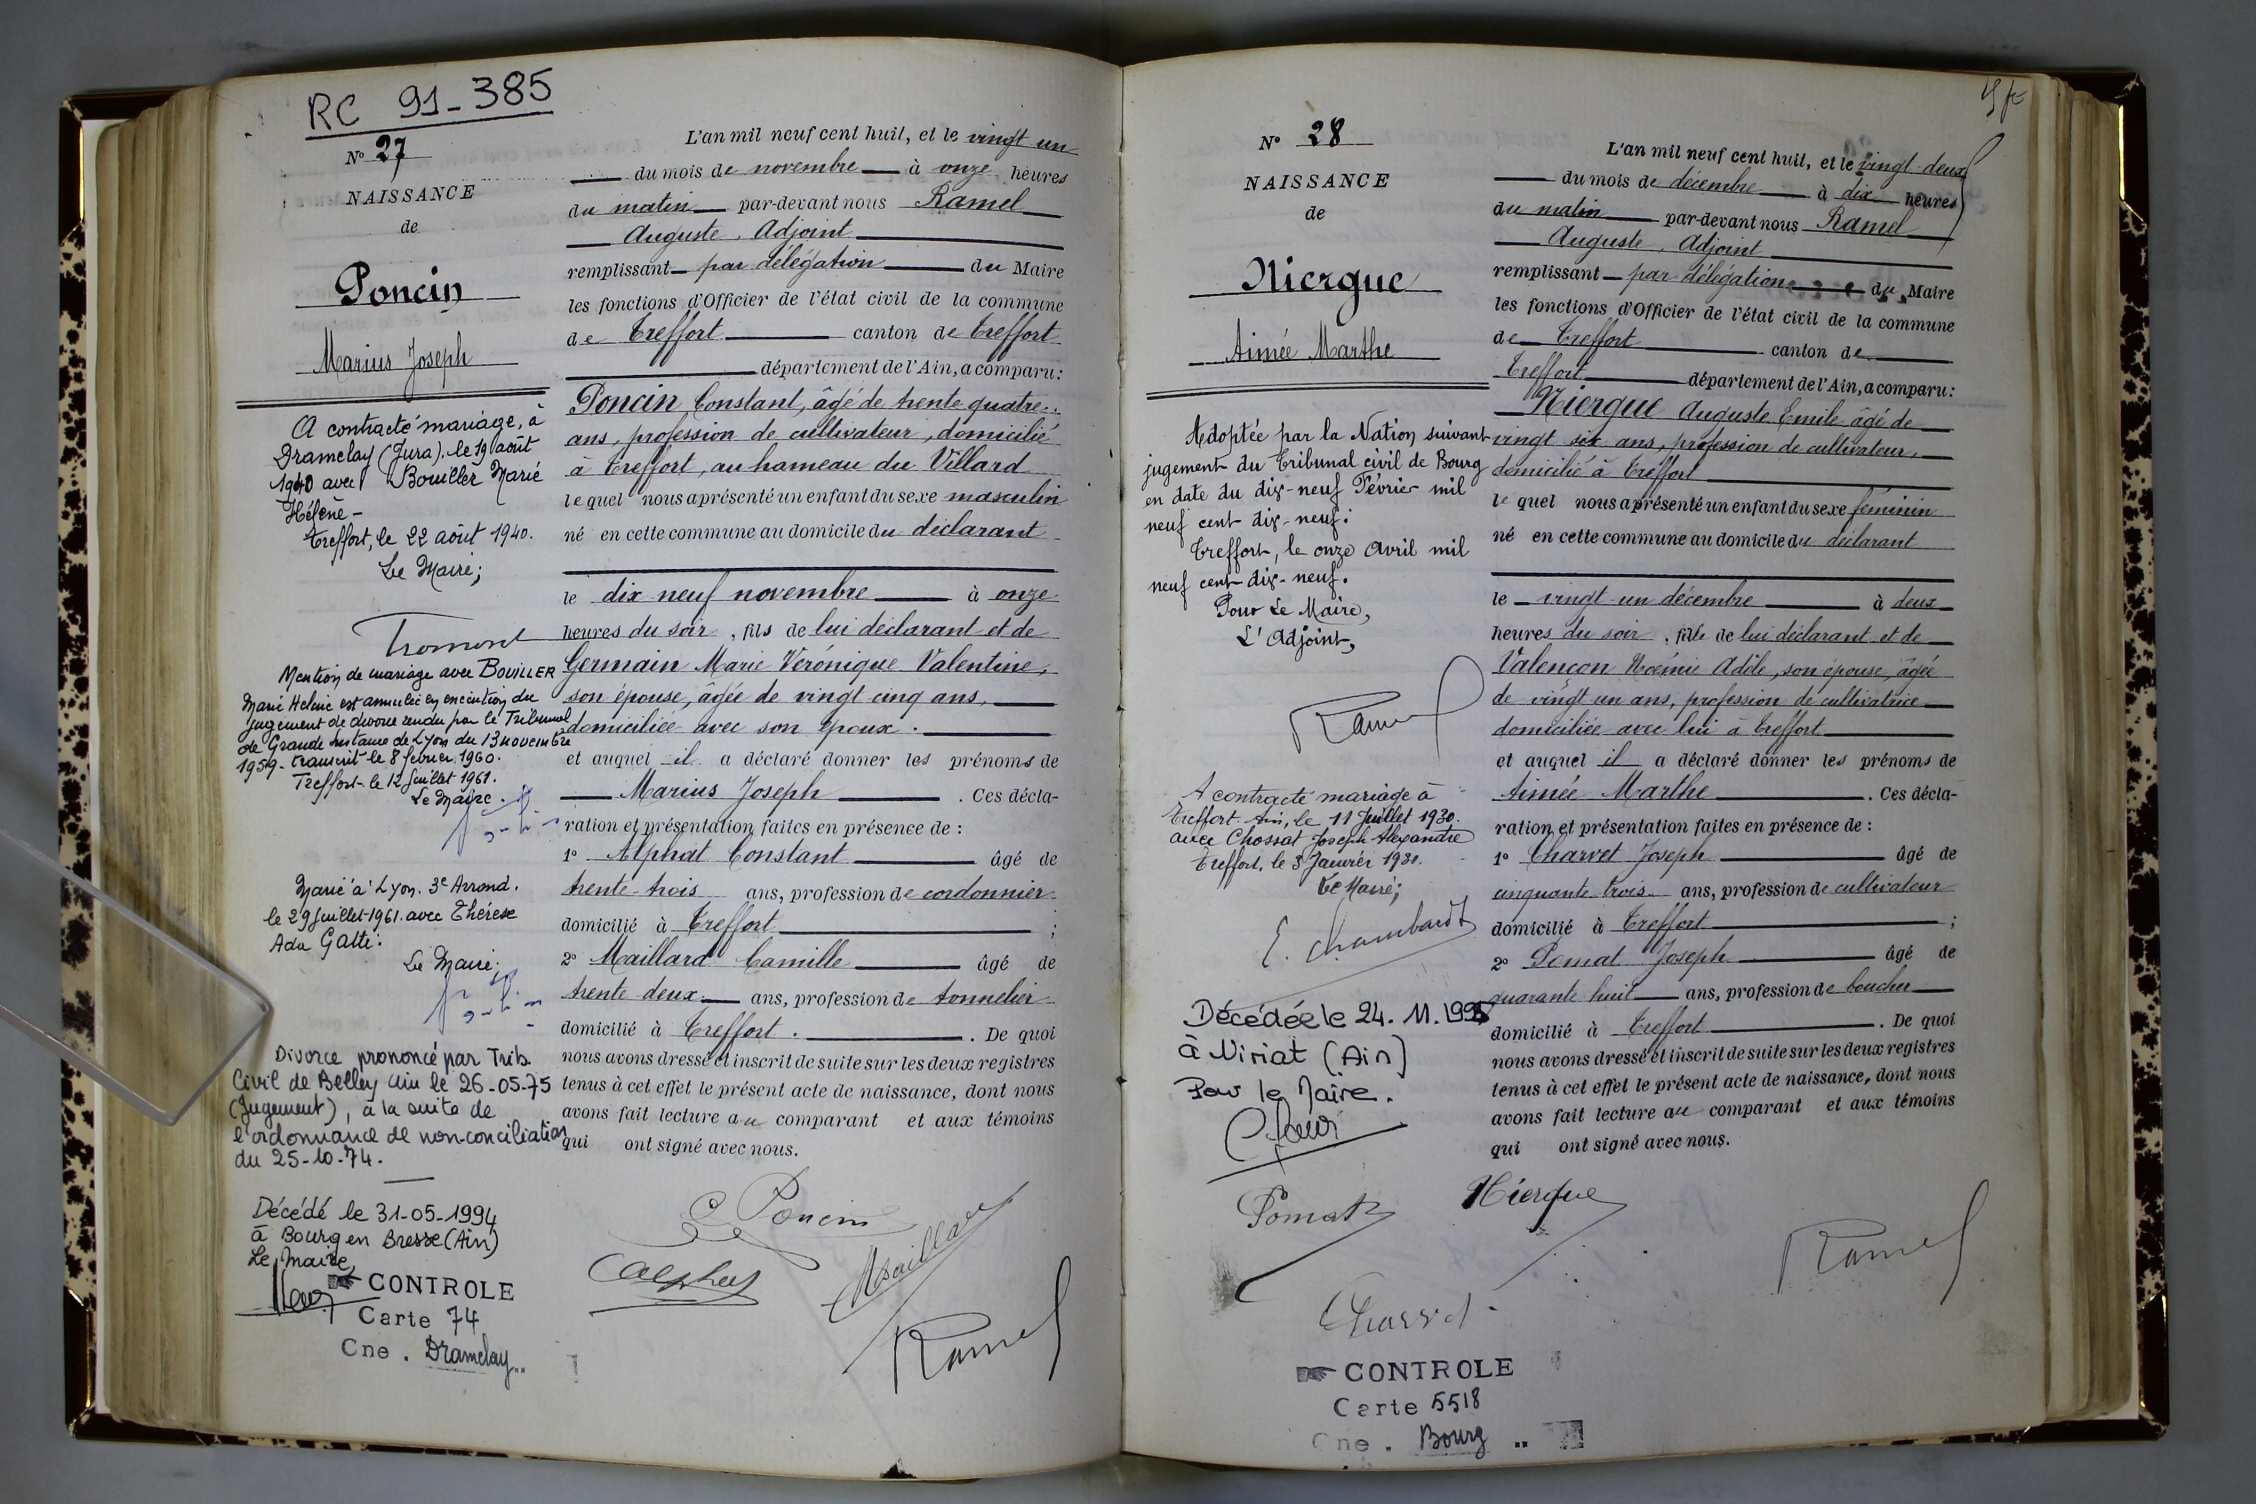 RC 91-385
N° 27
NAISSANCE
de
Poncin
Marius Joseph
A contracté mariage, à
Dramelay (Jura), le 19 août
1940 avec Bouiller Marie
Hélène -
Treffort, le 22 août 1940.
Le Maire;
Mention de mariage avec BOUILLER
Marie Hélène est annulée en exécution du
jugement de divorce rendu par le Tribunal
de Grande Instance de Lyon du 13 novembre
1959 - transcrit le 8 février 1960.
Treffort - le 12 juillet 1961.
Le Maire.
Marié à Lyon. 3e Arrond.
le 29 juillet 1961. avec Thérèse
Ada Gatti.
Le Maire;
Divorce prononcé par Trib.
Civil de Belley Ain le 26-05-75
(Jugement), à la suite de
l'ordonnance de non-conciliation
du 25-10-74.
Décédé le 31-05-1994
à Bourg en Bresse (Ain)
Le Maire,
CONTROLE
Carte 74
Cne. Dramelay..
L'an mil neuf cent huit, et le vingt un
du mois de novembre à onze heures
du matin par-devant nous Ramel
Auguste, Adjoint
remplissant par délégation du Maire
les fonctions d'Officier de l'état civil de la commune
de Treffort canton de Treffort
département de l'Ain, a comparu:
Poncin Constant, âgé de trente quatre
ans, profession de cultivateur, domicilié
à Treffort, au hameau du Villard
le quel nous a présenté un enfant du sexe masculin
né en cette commune au domicile du déclarant
le dix neuf novembre à onze
heures du soir, fils de lui déclarant et de
Germain Marie Véronique Valentine,
son épouse, âgée de vingt cinq ans,
domiciliée avec son époux.
et auquel il a déclaré donner les prénoms de
Marius Joseph. Ces décla-
ration et présentation faites en présence de :
1° Alphat Constant âgé de
trente-trois ans, profession de cordonnier
domicilié à Treffort ;
2° Maillard Camille âgé de
trente deux ans, profession de tonnelier
domicilié à Treffort. De quoi
nous avons dressé et inscrit de suite sur les deux registres
tenus à cet effet le présent acte de naissance, dont nous
avons fait lecture au comparant et aux témoins
qui ont signé avec nous.
Poncin
Calphat
Maillard
Ramel
N° 28
NAISSANCE
de
Niergue
Aimée Marthe
Adoptée par la Nation suivant
jugement du Tribunal civil de Bourg
en date du dix-neuf Février mil
neuf cent dix-neuf.
Treffort, le onze Avril mil
neuf cent dix-neuf.
Pour Le Maire,
L'Adjoint,
Ramel
A contracté mariage à
Treffort Ain, le 11 Juillet 1930.
avec Chossat Joseph Alexandre
Le Maire;
E. Chambard
Décédée le 24. 11. 1995
à Viriat (Ain)
Pour le Maire.
L'an mil neuf cent huit, et le vingt deux
du mois de décembre à dix heures
du matin par-devant nous Ramel
Auguste, Adjoint
remplissant par délégation du Maire
les fonctions d'Officier de l'état civil de la commune
de Treffort canton de
Treffort département de l'Ain, a comparu:
Niergue Auguste Emile âgé de
vingt six ans, profession de cultivateur,
domicilié à Treffort
le quel nous a présenté un enfant du sexe féminin
né en cette commune au domicile du déclarant
le vingt un décembre à deux
heures du soir, fille de lui déclarant et de
Valençon Noémie Adèle, son épouse, âgée
de vingt un ans, profession de cultivatrice
domiciliée avec lui à Treffort
et auquel il a déclaré donner les prénoms de
Aimée Marthe. Ces décla-
ration et présentation faites en présence de :
1° Charvet Joseph âgé de
cinquante trois ans, profession de cultivateur
domicilié à Treffort ;
2° Pomat Joseph âgé de
quarante huit ans, profession de boucher
domicilié à Treffort. De quoi
nous avons dressé et inscrit de suite sur les deux registres
tenus à cet effet le présent acte de naissance, dont nous
avons fait lecture au comparant et aux témoins
qui ont signé avec nous.
Pomat
Niergue
Ramel
Charvet
CONTROLE
Carte 5518
Cne. Bourg ..